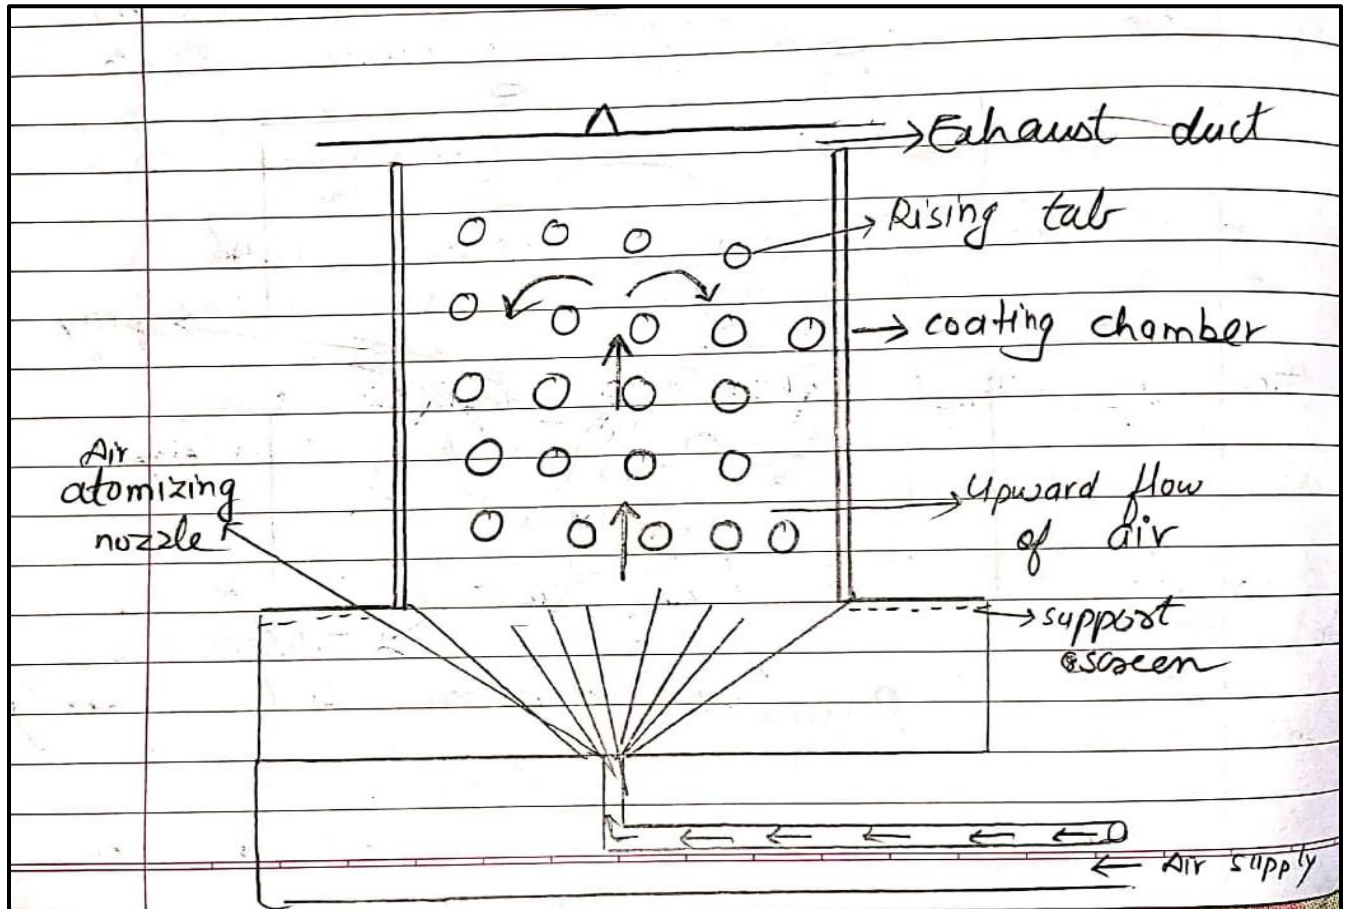 Exhaust duct
Rising tab
coating chamber
Air
atomizing
nozzle
Upward flow
of air
support
screen
Air supply